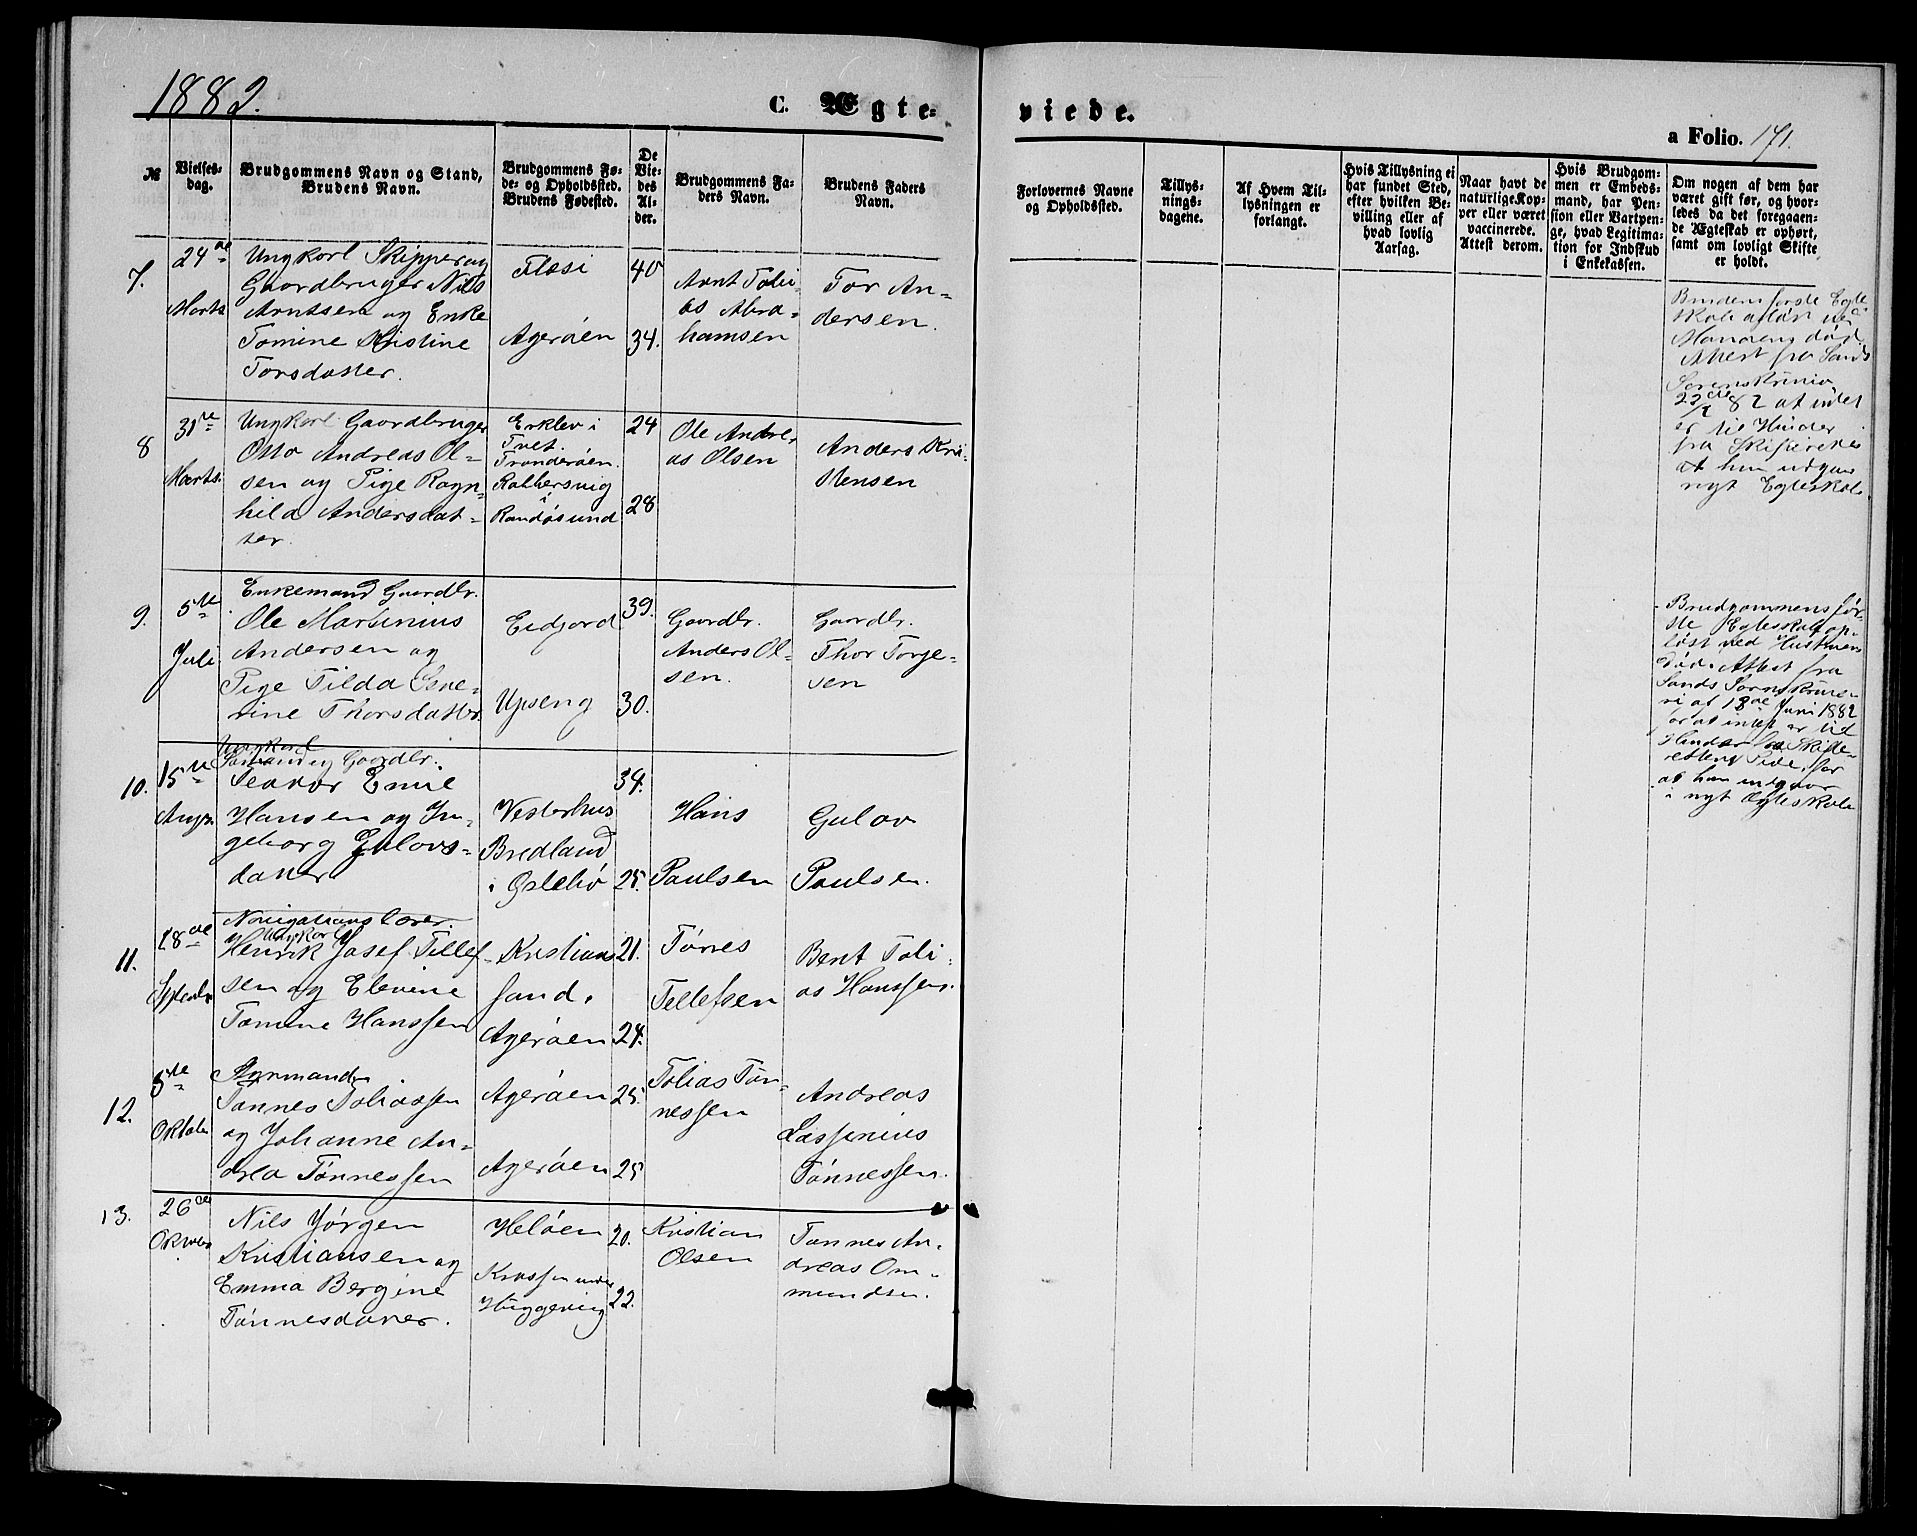 1882.
C. Ægte-
viede.
a Folio. 171.
№
Vielses-
dag.
Brudgommens Navn og Stand,
Brudens Navn.
Brudgommens Fø-
de- og Opholdssted.
Brudens Fødested.
De
Vie-
des
Al-
der.
Brudgommens Fa-
ders Navn.
Brudens Faders
Navn.
Forlovernes Navne
og Opholdssted.
Tillys-
nings-
dagene.
Af Hvem Til-
lysningen er
forlangt.
Hvis Tillysning ei
har fundet Sted,
efter hvilken Be-
villing eller af
hvad lovlig
Aarsag.
Naar havt de
naturlige Kop-
per eller været
vaccinerede.
Attest derom.
Hvis Brudgom-
men er Embeds-
mand, har Pen-
sion eller Vartpen-
ge, hvad Legitima-
tion for Indskud
i Enkekassen.
Om nogen af dem har
været gift før, og hvor-
ledes da det foregaaen-
de Ægteskab er ophørt,
samt om lovligt Skifte
er holdt.
7.
24de
Marts
Ungkarl Skipper og
Gaardbruger Nils
Arntsen og Enke
Tomine Kristine
Torsdatter.
Flesi
Agerøen
40
34.
Arnt Tobi-
as Abra-
hamsen
Tor An-
dersen.
Brudens første Egte
skab opløst ved
Mandens død.
Attest fra Sands
Sorenskriveri
82 at intet
er til Hinder
fra Skifterettens
at hun indgaar
nyt Egteskab.
8
31te
Marts.
Ungkarl Gaardbruger
Otto Andreas Ol-
sen og Pige Ragn-
hild Andersdat-
ter.
Erklev i
Tvet.
Trønderøen.
i
Randøsund
24
28
Ole Andre-
as Olsen
Anders Kri-
stensen
9.
5te
Juli
Enkemand Gaardbr.
Ole Martinius
Andersen og
Pige Tilda Seve-
rine Thorsdatter.
Eidjord
Upseng
39.
30.
Gaardbr.
Anders Ol-
sen.
Gaardbr.
Thor Torje-
sen
Brudgommens før-
ste Egteskab op-
løst ved Hustruens
Død. Attest fra
Sands Sorenskrive-
ri af 18de Juni 1882
for at intet er til
Hinder fra Skifte-
rettens Side, for
at han indgaar
i nyt Egteskab
10.
15de
Aug.
Ungkarl
og Gaardbr.
Teodor Emil
Hansen og In-
geborg Gulovs-
datter
Vesterhus
Bredland
i Østebø
34.
25.
Hans
Paulsen
Gulov
Paulsen.
11.
28de
Septembr
Navigationslærer.
Ungkarl
Henrik Josef Tellef-
sen og Elevine
Tomine Hanssen
Kristians
sand.
Agerøen
21.
24.
Tønes
Tellefsen
Bent Tobi-
as Hanssen.
12.
5te
Oktober
Styrmand
Tønnes Tobiassen
og Johanne An-
drea Tønnessen
Agerøen
Agerøen
25.
25
Tobias Tøn-
nessen
Andreas
Lassenius
Tønnessen.
13.
26de
Oktober
Nils Jørgen
Kristiansen og
Emma Bergine
Tønnesdatter.
Heløen
Krossen under
Huggevig
20.
22.
Kristian
Olsen
Tønnes An-
dreas Om-
mundsen.